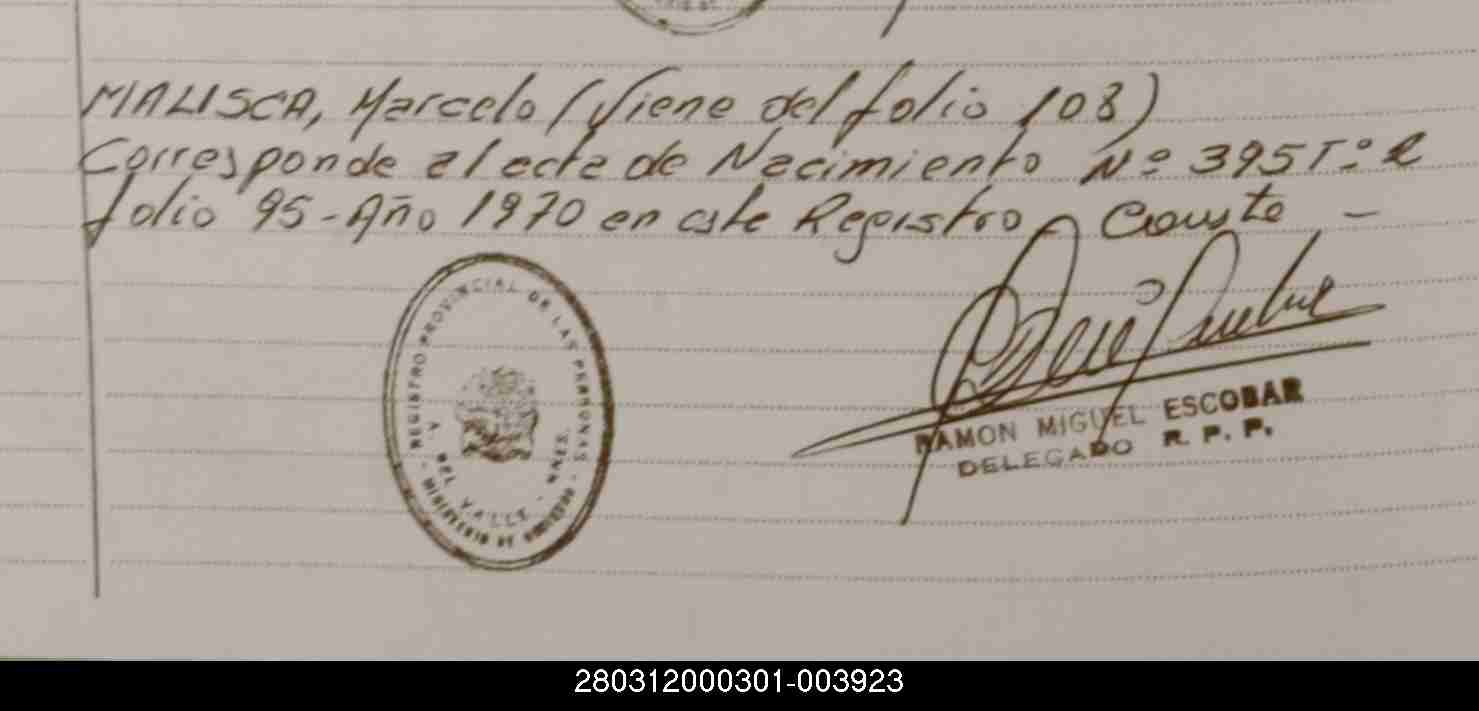 MALISCA, Marcelo (Viene del folio 108)
Corresponde al acta de Nacimiento Nº 395 Tº
folio 95 - Año 1970 en este Registro Conste -
REGISTRO PROVINCIAL DE LAS PERSONAS
A. DEL VALLE - MNES.
MINISTERIO DE GOBIERNO
RAMON MIGUEL ESCOBAR
DELEGADO R. P. P.
280312000301-003923